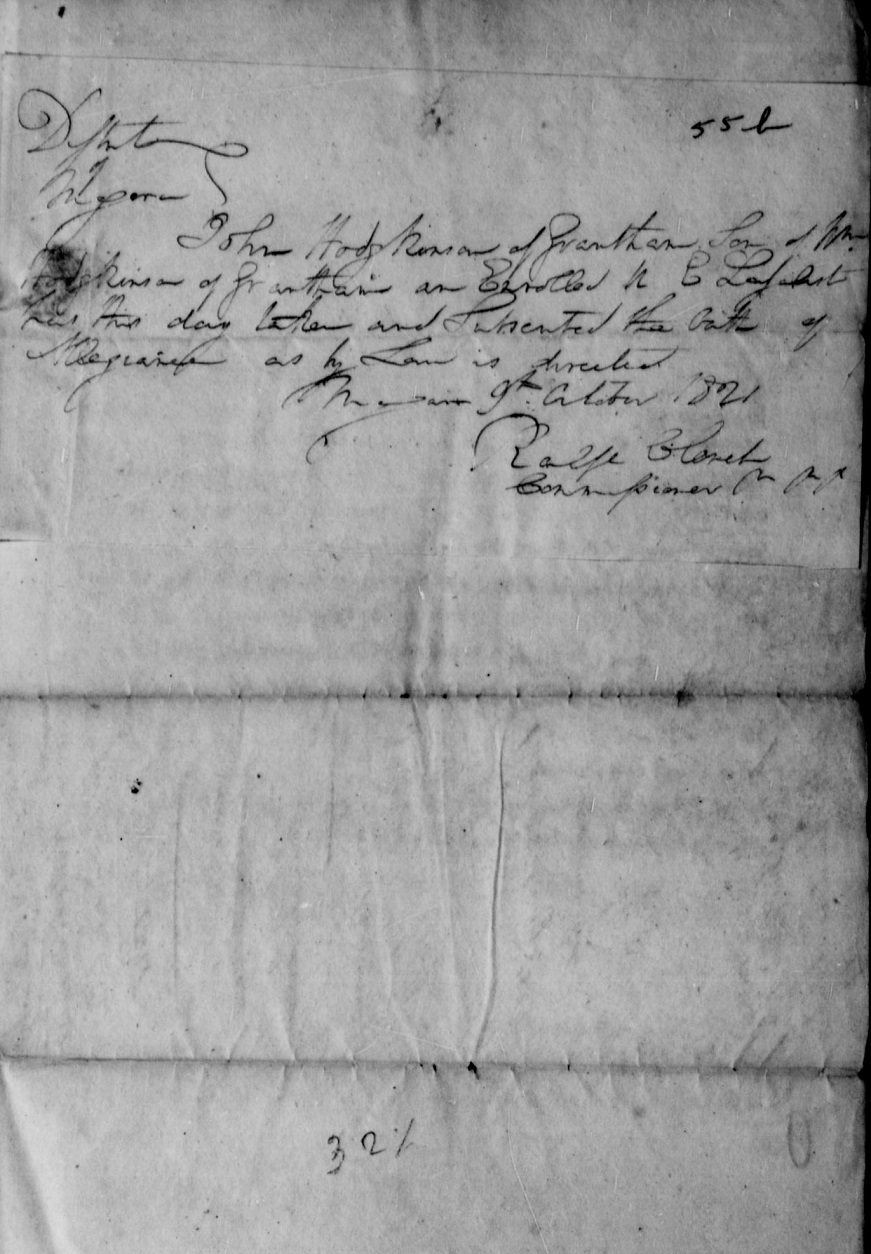 55b
District
of
Niagara
John Hodgkinson of Grantham Son of Wm
Hodgkinson of Grantham an Enrolled U E Loyalist
has this day taken and Subscribed the Oath of
Allegiance as by Law is directed
Niagara 9th October 1821
Ralfe Clench
Commissioner
321